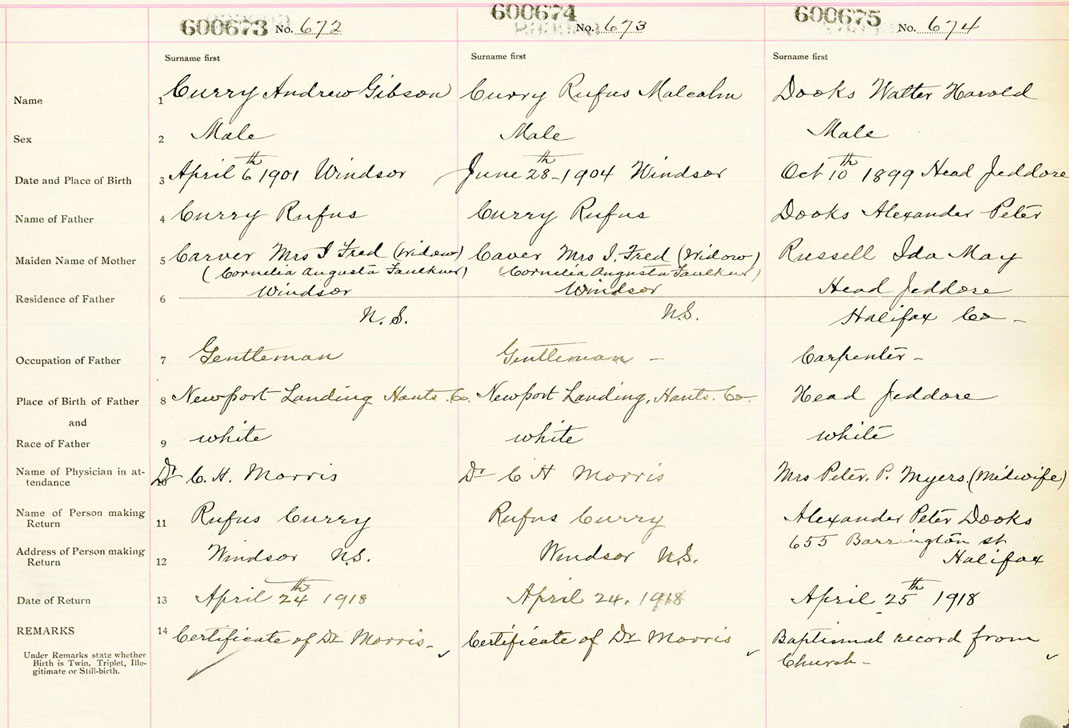 600673 No. 672
600674 No. 673
600675 No. 674
Surname first
Surname first
Surname first
Name
1 Curry Andrew Gibson
Curry Rufus Malcolm
Dooks Walter Harold
Sex
2 Male
Male
Male
Date and Place of Birth
3 April 6th 1901 Windsor
June 28th - 1904 Windsor
Oct 10th 1899 Head Jeddore
Name of Father
4 Curry Rufus
Curry Rufus
Dooks Alexander Peter
Maiden Name of Mother
5 Carver Mrs I Fred (Widow)
(Cornelia Augusta Faulkner)
Caver Mrs I. Fred (Widow)
(Cornelia Augusta Faulkner)
Russell Ida May
Residence of Father
6 Windsor
N.S.
Windsor
N.S.
Head Jeddore
Halifax Co -
Occupation of Father
7 Gentleman
Gentleman -
Carpenter -
Place of Birth of Father
8 Newport Landing Hants. Co.
Newport Landing, Hants. Co.
Head Jeddore
and
Race of Father
9 white
white
white
Name of Physician in at-
tendance
10 Dr C. H. Morris
Dr C H Morris
Mrs Peter. P. Myers. (Midwife)
Name of Person making
Return
11 Rufus Curry
Rufus Curry
Alexander Peter Dooks
Address of Person making
Return
12 Windsor N.S.
Windsor N.S.
655 Barrington st
Halifax
Date of Return
13 April 24th 1918
April 24. 1918
April 25th 1918
REMARKS
14 Certificate of Dr Morris -
Certificate of Dr Morris
Baptismal record from
Church -
Under Remarks state whether
Birth is Twin, Triplet, Ille-
gitimate or Still-birth.